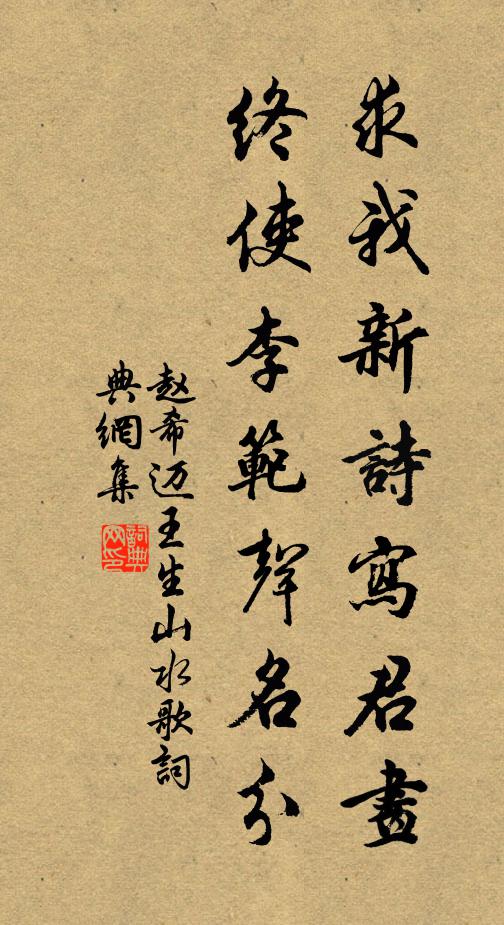 求我新詩寫君畫
終使李範聲名分
赵希迈王生山水歌詞
典網集
詞典
网印